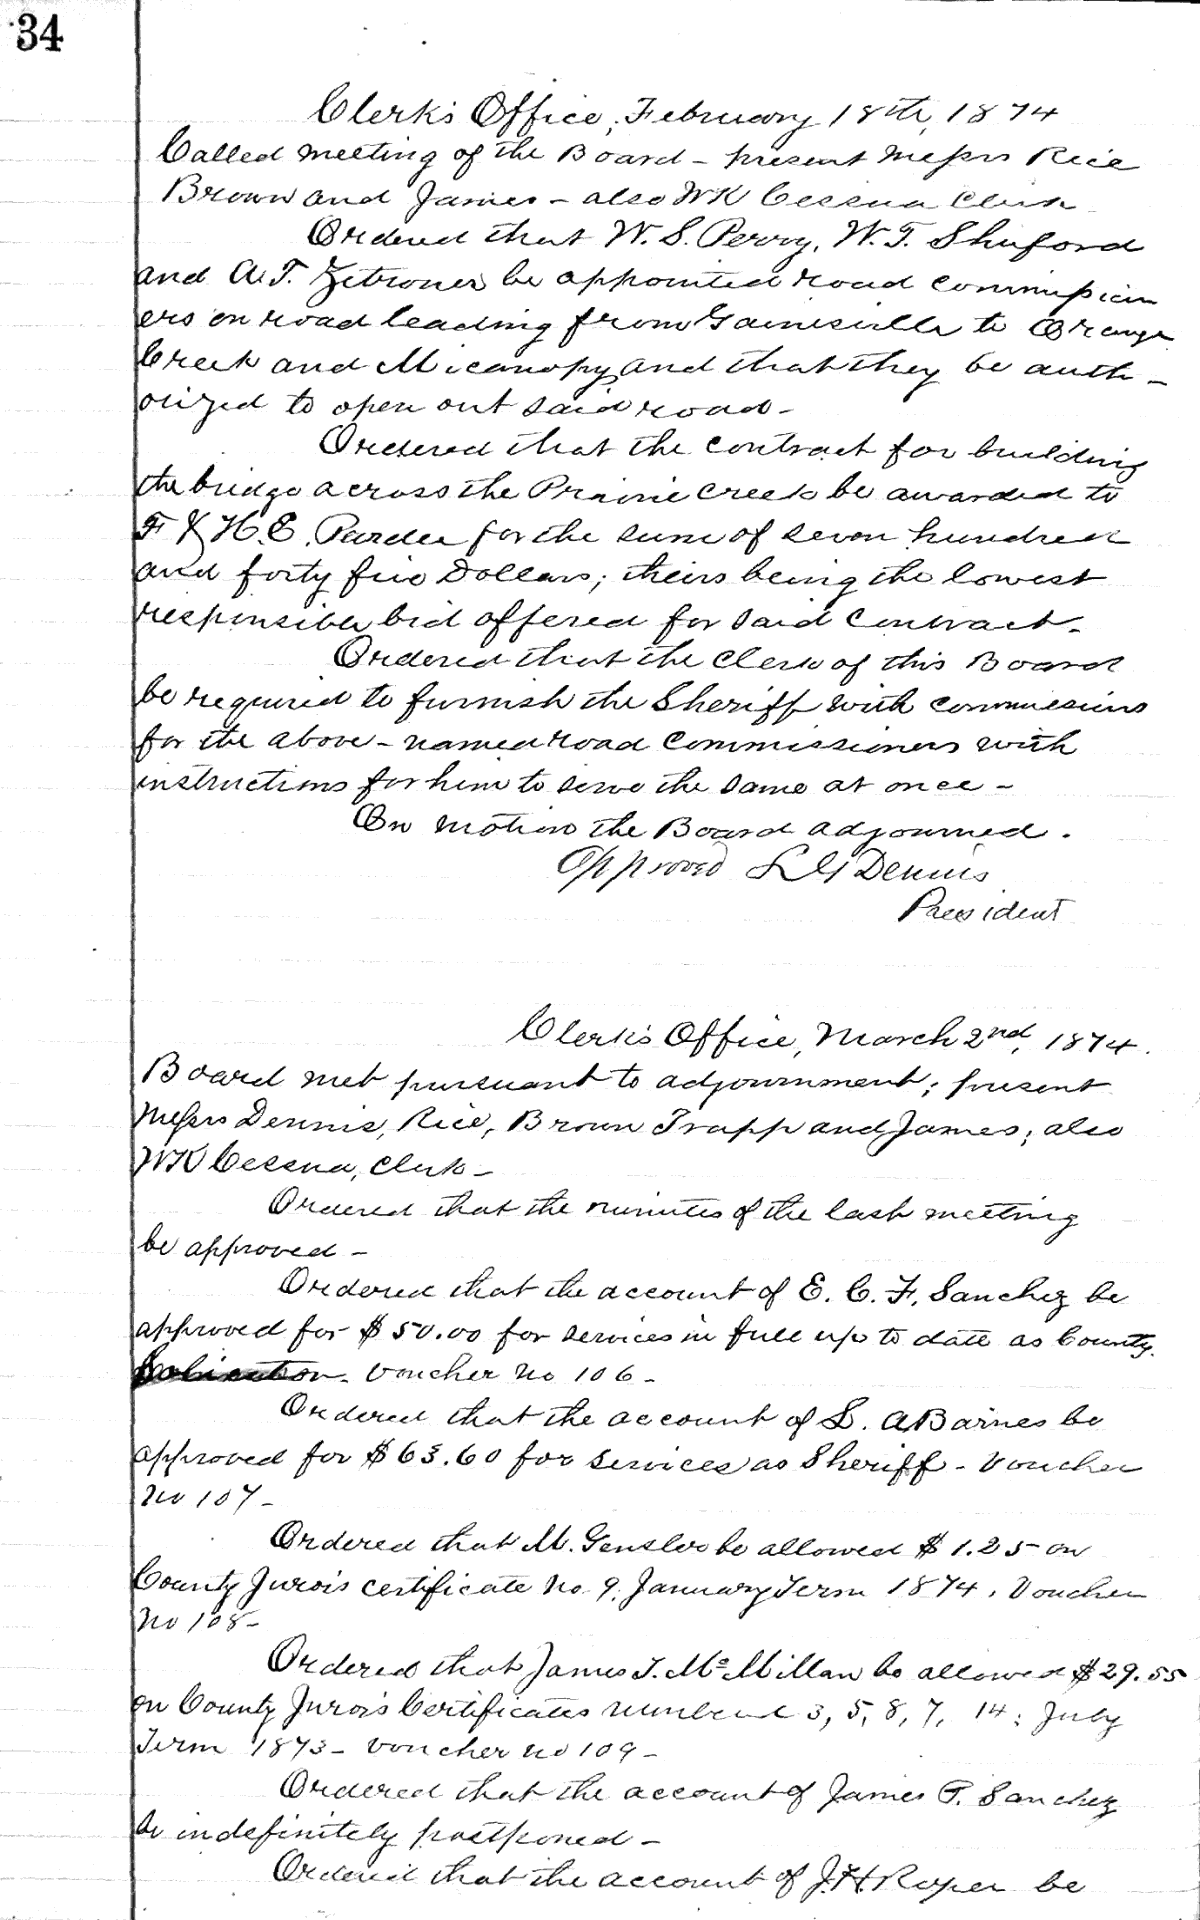 34
Clerk's Office, February 18th, 1874
Called meeting of the Board - present Messrs Rice
Brown and James - also WK Cessna Clerk
Ordered that W. S. Perry, W. T. Shuford
and A. T. Zetrouer be appointed road commission
ers on road leading from Gainesville to Orange
Creek and Micanopy and that they be auth -
orized to open out said road -
Ordered that the contract for building
the bridge across the Prairie Creek be awarded to
F & H. E. Pardee for the sum of seven hundred
and forty five Dollars; theirs being the lowest
responsible bid offered for said contract -
Ordered that the Clerk of this Board
be required to furnish the Sheriff with commissions
for the above - named road commissioners with
instructions for him to serve the same at once -
On motion the Board adjourned.
Approved L G Dennis
President
Clerk's Office, March 2nd, 1874.
Board met pursuant to adjournment; present
Messrs Dennis, Rice, Brown Trapp and James; also
WK Cessna, Clerk -
Ordered that the minutes of the last meeting
be approved -
Ordered that the account of E. C. F. Sanchez be
approved for $50.00 for services in full up to date as County
Voucher No 106 -
Ordered that the account of L. A Barnes be
approved for $63.60 for services as Sheriff - Voucher
No 107 -
Ordered that M. Gensler be allowed $1.25 on
County Juror's certificate No. 9, January Term 1874. Voucher
No 108 -
Ordered that James T. McMillan be allowed $29.55
on County Juror's Certificates numbered 3, 5, 8, 7, 14; July
Term 1873 - voucher no 109 -
Ordered that the account of James T. Sanchez
be indefinitely postponed -
Ordered that the account of J. H. Roper be